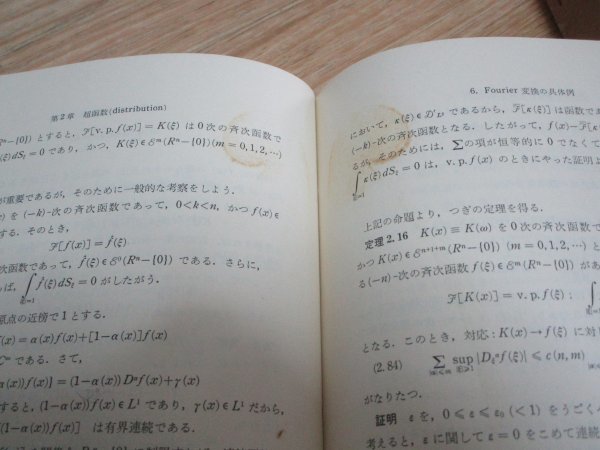 第2章 超函数(distribution)
Rⁿ−{0})とすると，ℱ[v.p.f(x)]=K(ξ) は0次の斉次函数で
(ξ)dS_ξ=0 であり，かつ，K(ξ)∈ℰᵐ(Rⁿ−{0})(m=0,1,2,…)
が重要であるが，そのために一般的な考察をしよう．
を (−k)-次の斉次函数であって，0<k<n，かつ f(x)∈
する．そのとき，
ℱ[f(x)]=f̂(ξ)
次函数であって，f̂(ξ)∈ℰ⁰(Rⁿ−{0}) である．さらに，
ば，∫_{|ξ|=1} f̂(ξ)dS_ξ=0 がしたがう．
原点の近傍で1とする．
f(x)=α(x)f(x)+[1−α(x)]f(x)
である．さて，
α(x))f(x)]=(1−α(x))Dⁿf(x)+γ(x)
すると，(1−α(x))f(x)∈L¹ であり，γ(x)∈L¹ だから，
(1−α(x))f(x)] は有界連続である．
6. Fourier 変換の具体例
において，κ(ξ)∈𝒟′_{L²} であるから，ℱ[κ(ξ)] は函数であ
(−k)-次の斉次函数となる．したがって，f(x)−ℱ[κ(ξ)]
るが，そのためには，∑の項が恒等的に0でなくて
∫_{|ξ|=1} κ(ξ)dS_ξ=0 は，v.p.f(x) のときにやった証明よ
上記の命題より，つぎの定理を得る．
定理 2.16 K(x)≡K(ω) を0次の斉次函数で
かつ K(x)∈ℰⁿ⁺¹⁺ᵐ(Rⁿ−{0}) (m=0,1,2,…) と
る (−n)-次の斉次函数 f(ξ)∈ℰᵐ(Rⁿ−{0}) があ
ℱ[K(x)]=v.p.f(ξ)； ∫_{|ξ|=1}
となる．このとき，対応：K(x)→f(ξ) に対
(2.84) ∑_{|α|≤m} sup_{|ξ|≥1} |D_ξ^α f(ξ)| ≤ c(n,m)
がなりたつ．
証明 ε を，0≤ε≤ε₀(<1) をうごく
考えると，ε に関して ε=0 をこめて連続